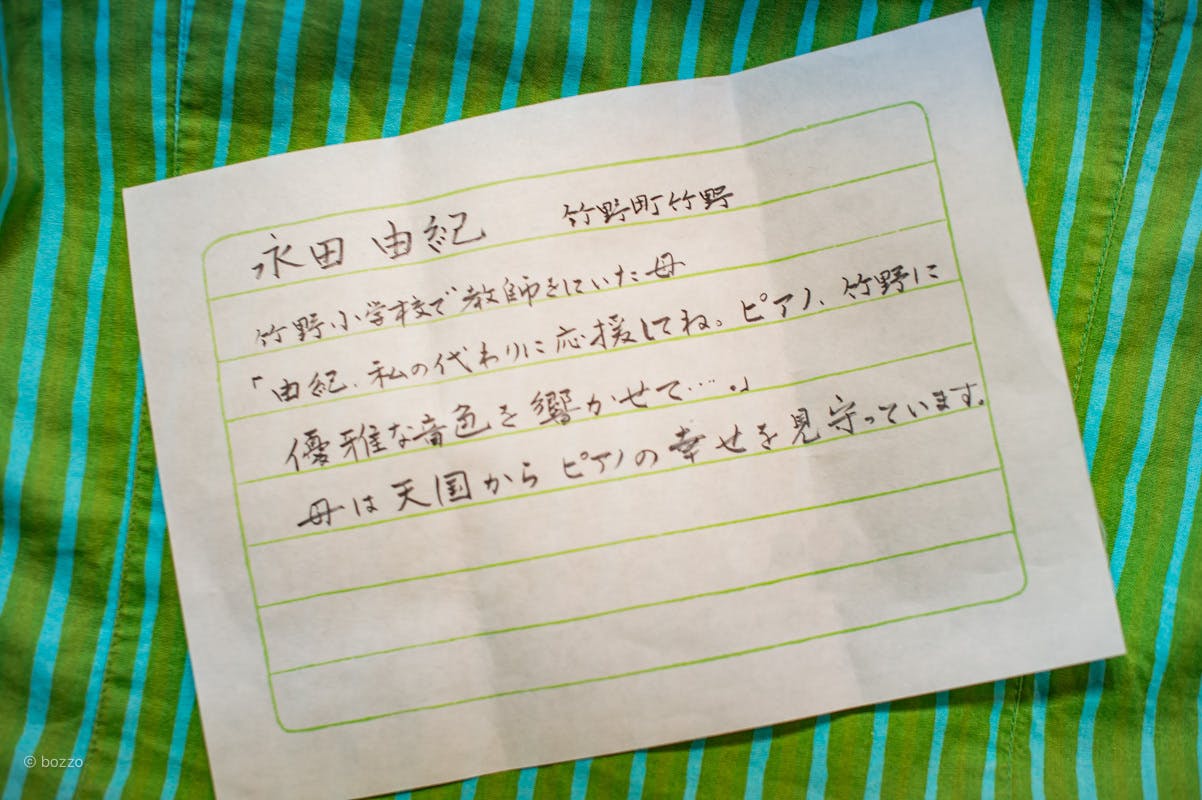 永田 由紀 竹野町竹野
竹野小学校で教師をしていた母
「由紀、私の代わりに応援してね。ピアノ、竹野に
優雅な音色を響かせて…。」
母は天国からピアノの幸せを見守っています。
© bozzo